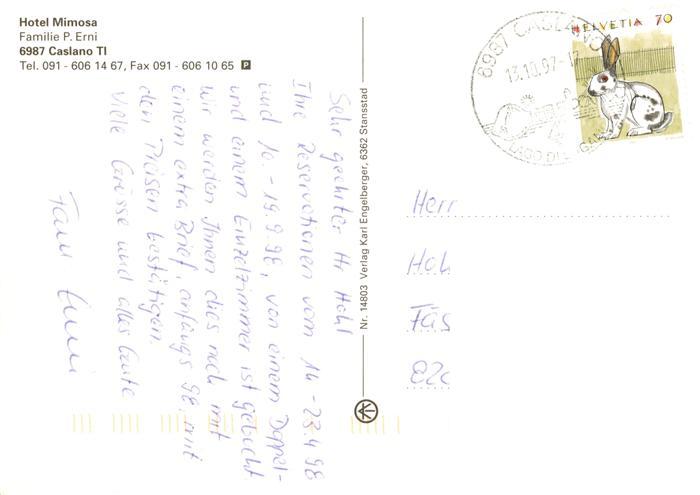 Hotel Mimosa
Familie P. Erni
6987 Caslano TI
Tel. 091 - 606 14 67, Fax 091 - 606 10 65 P
Sehr geehrter Hr Hohl
Ihre Reservationen vom 14 - 23.4 98
und 10. - 19.9 98, von einem Doppel-
und einem Einzelzimmer ist gebucht
Wir werden Ihnen dies noch mit
einem extra Brief, anfangs 98, mit
den Preisen bestätigen.
Viele Grüsse und alles Gute
Fam Erni
Nr. 14803 Verlag Karl Engelberger, 6362 Stansstad
6987 CASLANO
13.10.97-17
LAGO DI LUGANO
HELVETIA 70
Herr
Hoh
Fäs